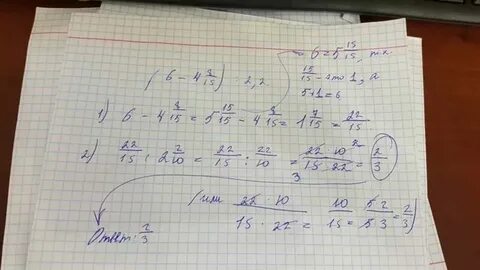 = 6 = 5 15/15, т.к.
15/15 - это 1, а
5+1=6
(6 - 4 8/15) : 2,2
1) 6 - 4 8/15 = 5 15/15 - 4 8/15 = 1 7/15 = 22/15
2) 22/15 : 2 2/10 = 22/15 : 22/10 = 22 · 10 2 / 15 · 22 3 = 2/3
(или 22 · 10 / 15 · 22 = 10/15 = 5 2 / 5 3 = 2/3)
Ответ: 2/3